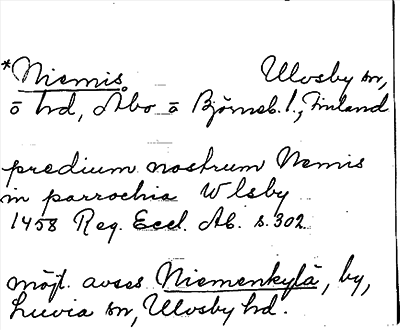 *Niemis, Ulvsby sn,
ö hd, Åbo o Björneb. l., Finland
predium nostrum Nemis
in parrochia Wlsby
1458 Reg. Eccl. Ab. s. 302
möjl. avses Niemenkylä, by,
Luvia sn, Ulvsby hd.